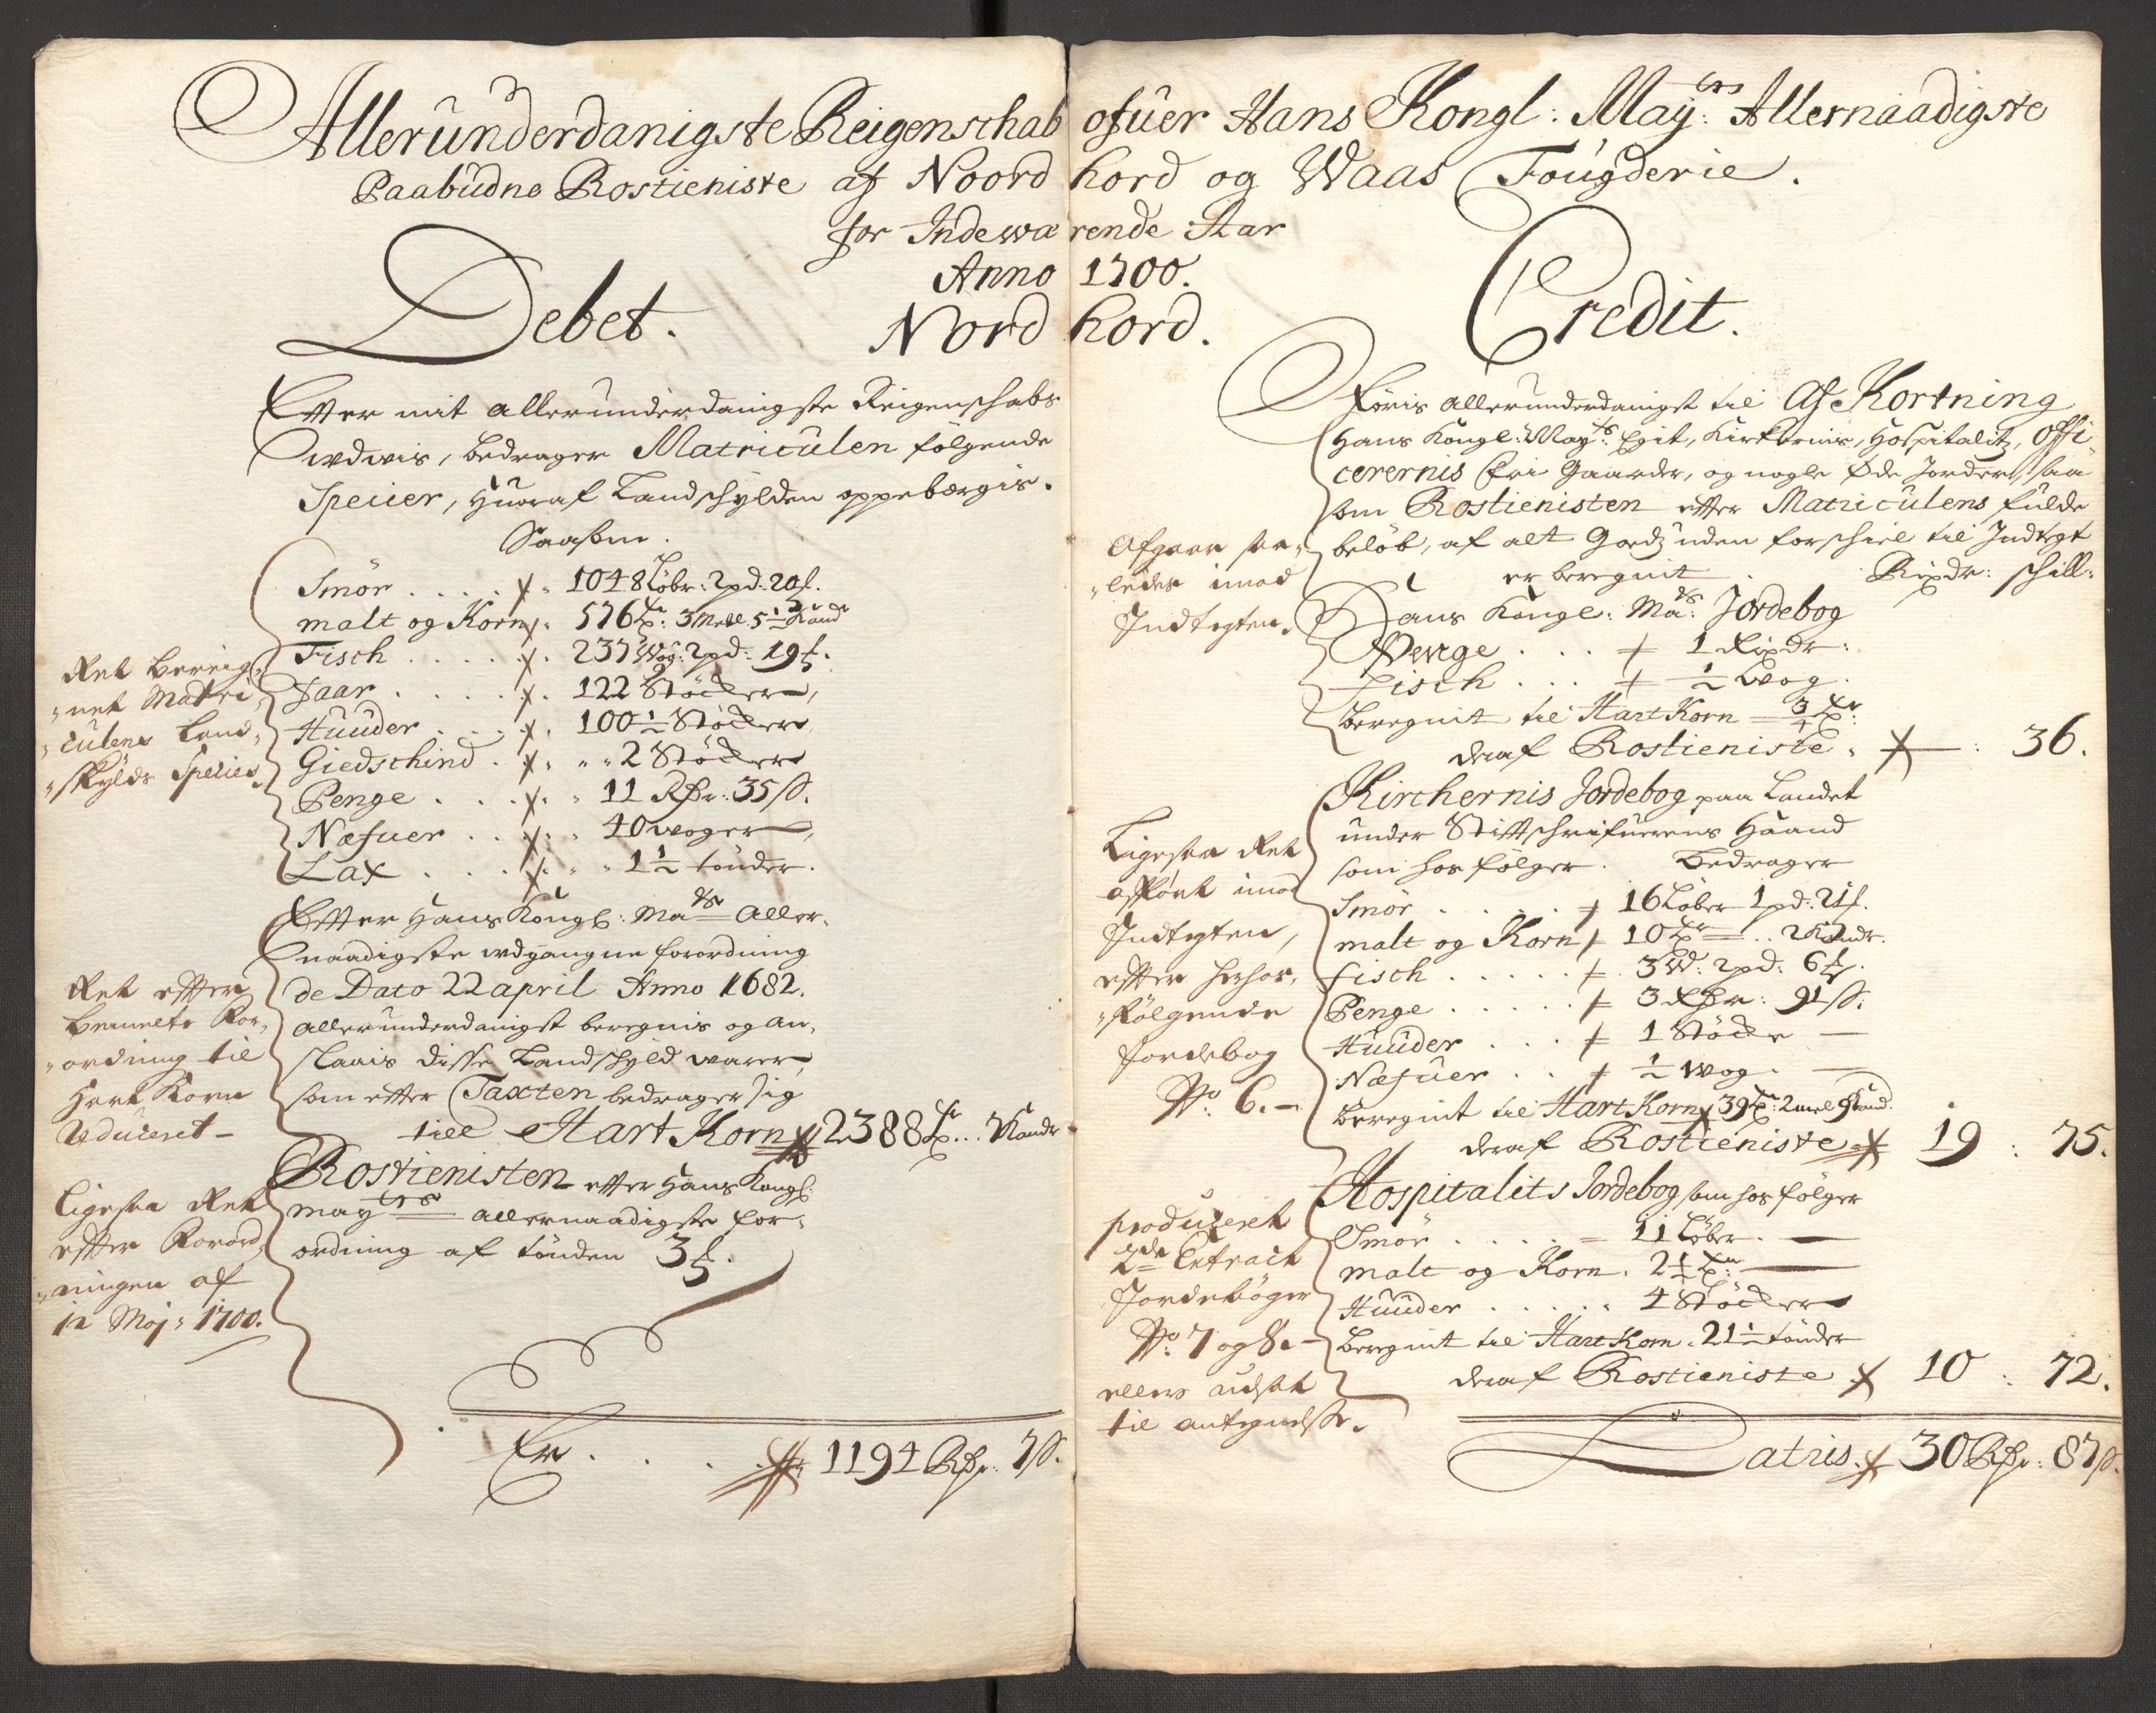 Allerunderdanigste Reigenschab ofuer Hans Kongl: May:ts Allernaadigste
Paabudne Rostieniste af Noordhord og Waas Fougderie.
for Indewærende Aar
Anno 1700.
Nordhord.
Debet.
Efter mit allerunderdanigste Reigenschabs
udvis, bedrager Matriculen følgende
Speiier, huoraf Landschylden oppebærgis.
Saasom.
Smør . . . . 1048 Løbr: 2 pd: 20 f.
malt og Korn 576 Tr: 3 Mell 5 1/2 Kand
Fisch . . . . . 237 Wog: 2 pd: 19 f.
Faar . . . . . 122 Støcker,
Huuder . . . . 100 1/2 Støcker
Giedschind . . . 2 Støcker
Penge . . . . 11 Rdr: 35 s.
Næfuer . . . . 40 woger,
Lax . . . . . 1 1/2 tønder.
Ret bereig,,
,,net Matri,,
,,culens Land,,
,,skylds Species
Efter Hans Kongl: Mats Aller,,
naadigste udgangne forordning
de Dato 22 april Anno 1682.
allerunderdanigst beregnis og an,,
slaais disse Landschyld warer,
som efter Taxten bedrager sig
till Hart Korn 2388 Tr . . 7 Kandr
Ret efter
bemelte For,,
,,ordning til
Hart Korn
reduceret –
Rostienisten efter Hans Kongl:
mayts allernaadigste for,,
ordning af tønden 3 f.
Ligesaa Ret
efter Forord,,
,,ningen af
12 Maj: 1700.
Er . . . . 1194 Rdr: 7 s.
Credit.
Føris allerunderdanigst til Af Kortning
Hans Kongl: Mayts: Egit, Kirkernis, Hospitalitz, Offi,,
cerernis frie Gaarder, og nogle Øde Jorder, saa
som Rostienisten efter Matriculens fulde
beløb, af alt Godz uden forschiel til Indtegt
er beregnit . Rixdr: schill:
Afgaar saa,,
,,ledes imod
Indtegten.
Hans Kongl: Mats: Jordebog
Penge . . . 1 Rixdr:
Fisch . . . 1/2 wog.
beregnit til Hart Korn 3/4 Tr:
deraf Rostieniste . : 36.
Kirchernis Jordebog paa Landet
under Stiftschrifuerens Haand
som hos følger . Bedrager
Smør . . . . . 16 Løber 1 pd: 21 f.
malt og Korn 10 Tr . . 2 Kandr.
fisch . . . . . 3 W: 2 pd: 6 f.
Penge . . . . . 3 Rdr: 91 s.
Huuder . . . 1 Støcke —
Næfuer . . 1/2 wog. —
beregnit til Hart Korn 39 Tr: 2 mel 9 Kand.
deraf Rostieniste 19 : 75.
Ligesaa Ret
afført imod
Indtegten,
efter herhos,,
,,følgende
Jordebog
No: 6. –
Hospitalits Jordebog som hos følger
Smør . . . . 11 Løber. —
malt og Korn . 2 1/2 Tr: —
Huuder . . . . . 4 Støcker
beregnit til Hart Korn . 21 1/2 tønder
deraf Rostieniste 10 : 72.
produceret
2de Extract
Jordebøger
No: 7 og 8. –
ellers udsat
til antegnelse.
Latris. 30 Rdr: 87 s.